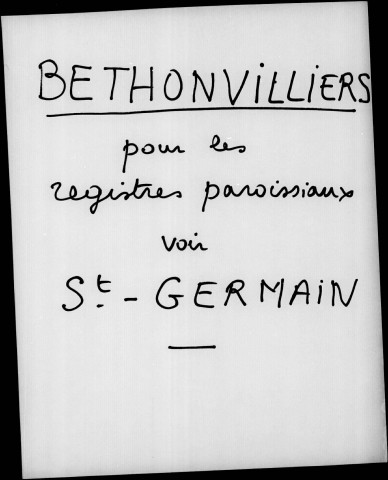 BETHONVILLIERS
pour les
registres paroissiaux
voir
St - GERMAIN